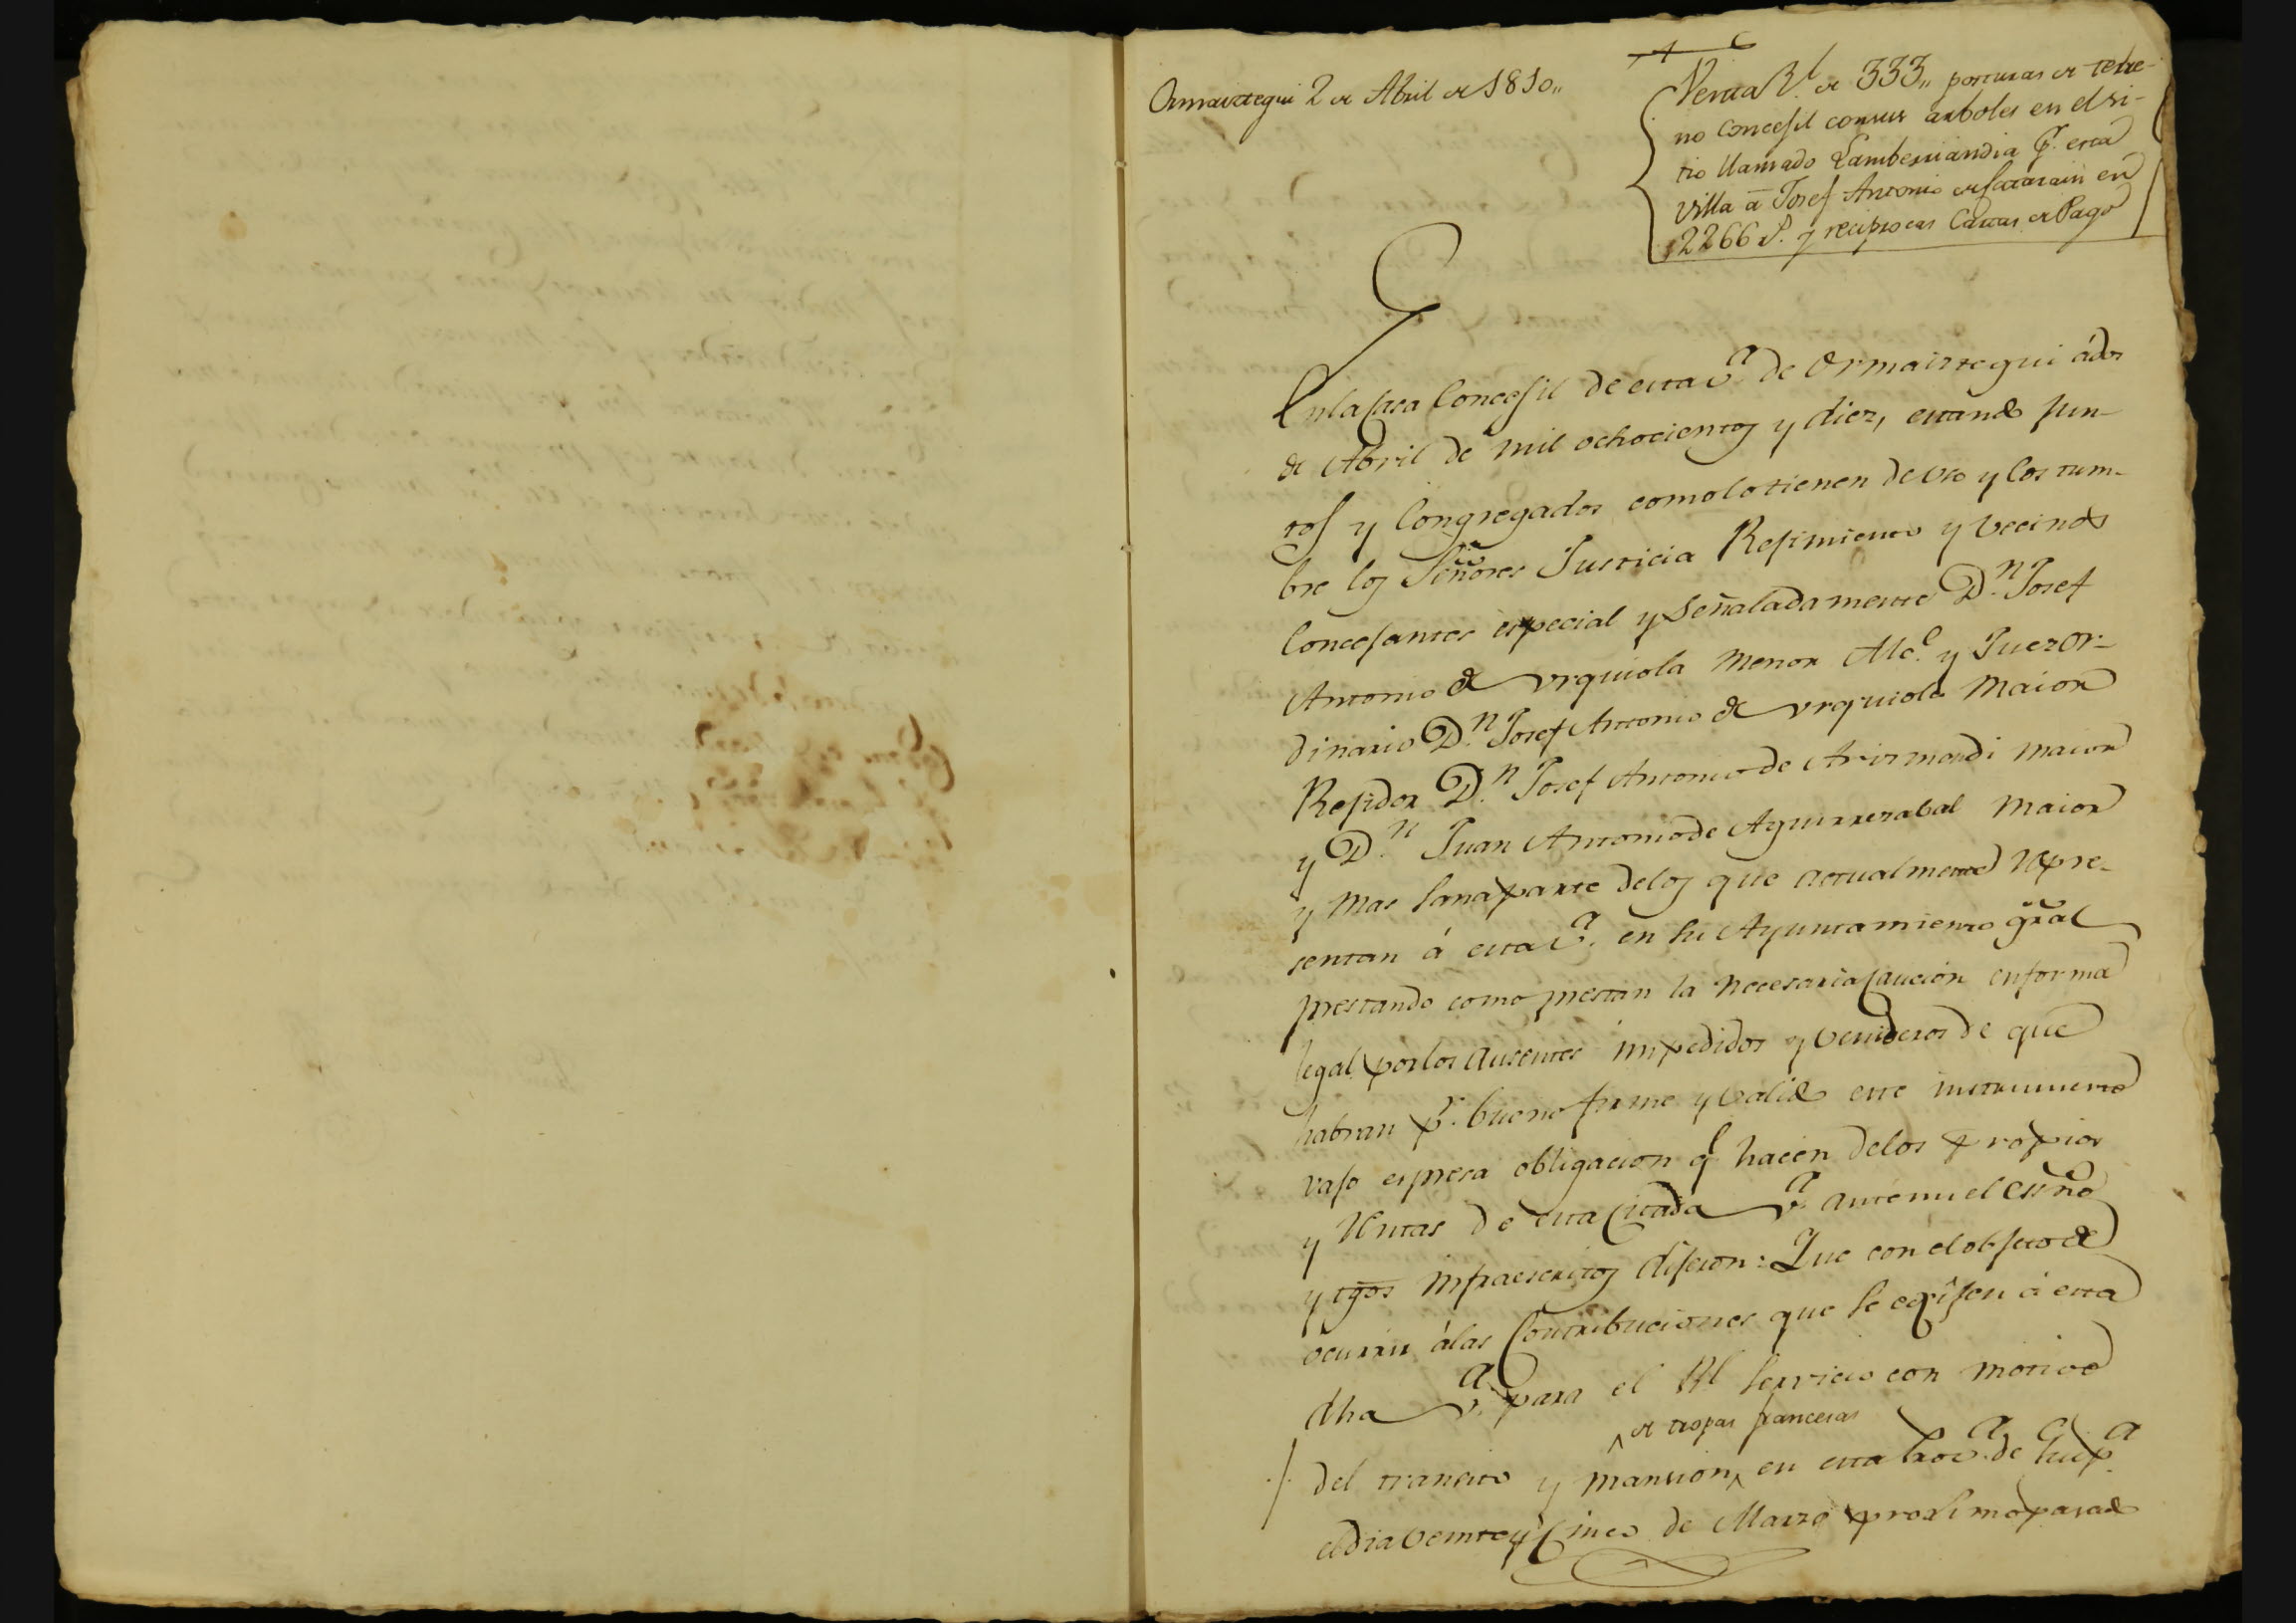 Ormaiztegui 2 de Abril de 1810,,
Venta Rl. de 333,, posturas de terre-
no concejil con sus arboles en el si-
tio llamado Lambeniandia qe. esta
villa á Josef Antonio de en
2266 r. y reciprocas Cartas de Pago
En la Casa Concejil de esta va. de Ormaiztegui á dos
de Abril de mil ochocientos y diez, estando jun-
tos y Congregados como lo tienen de uso y Costum-
bre los Señores Justicia Rejimiento y vecinos
Concejantes especial y Señaladamente Dn. Josef
Antonio de Urquiola menor Alce. y Juez Or-
dinario Dn. Josef Antonio de Urquiola maior
Rejidor Dn. Josef Antonio de Arismendi maior
y Dn. Juan Antonio de Aguirrezabal maior
y mas Sana parte de los que actualmente repre-
sentan á esta va. en su Ayuntamiento gral
prestando como prestan la necesaria Caución en forma
legal por los ausentes impedidos y venideros de que
habran pr. bueno firme y valido este instrumento
vajo espresa obligacion q hacen de los propios
y Rentas de esta Citada va. ante mi el essno
y tgos infraescritos dijeron: Que con el objeto de
ocurrir á las Contribuciones que se exijen á esta
dha va. para el Rl Servicio con motivo
de tropas francesas
del transito y mansion en esta Prova. de Guipa.
el dia veinte y Cinco de Marzo proximo pasado